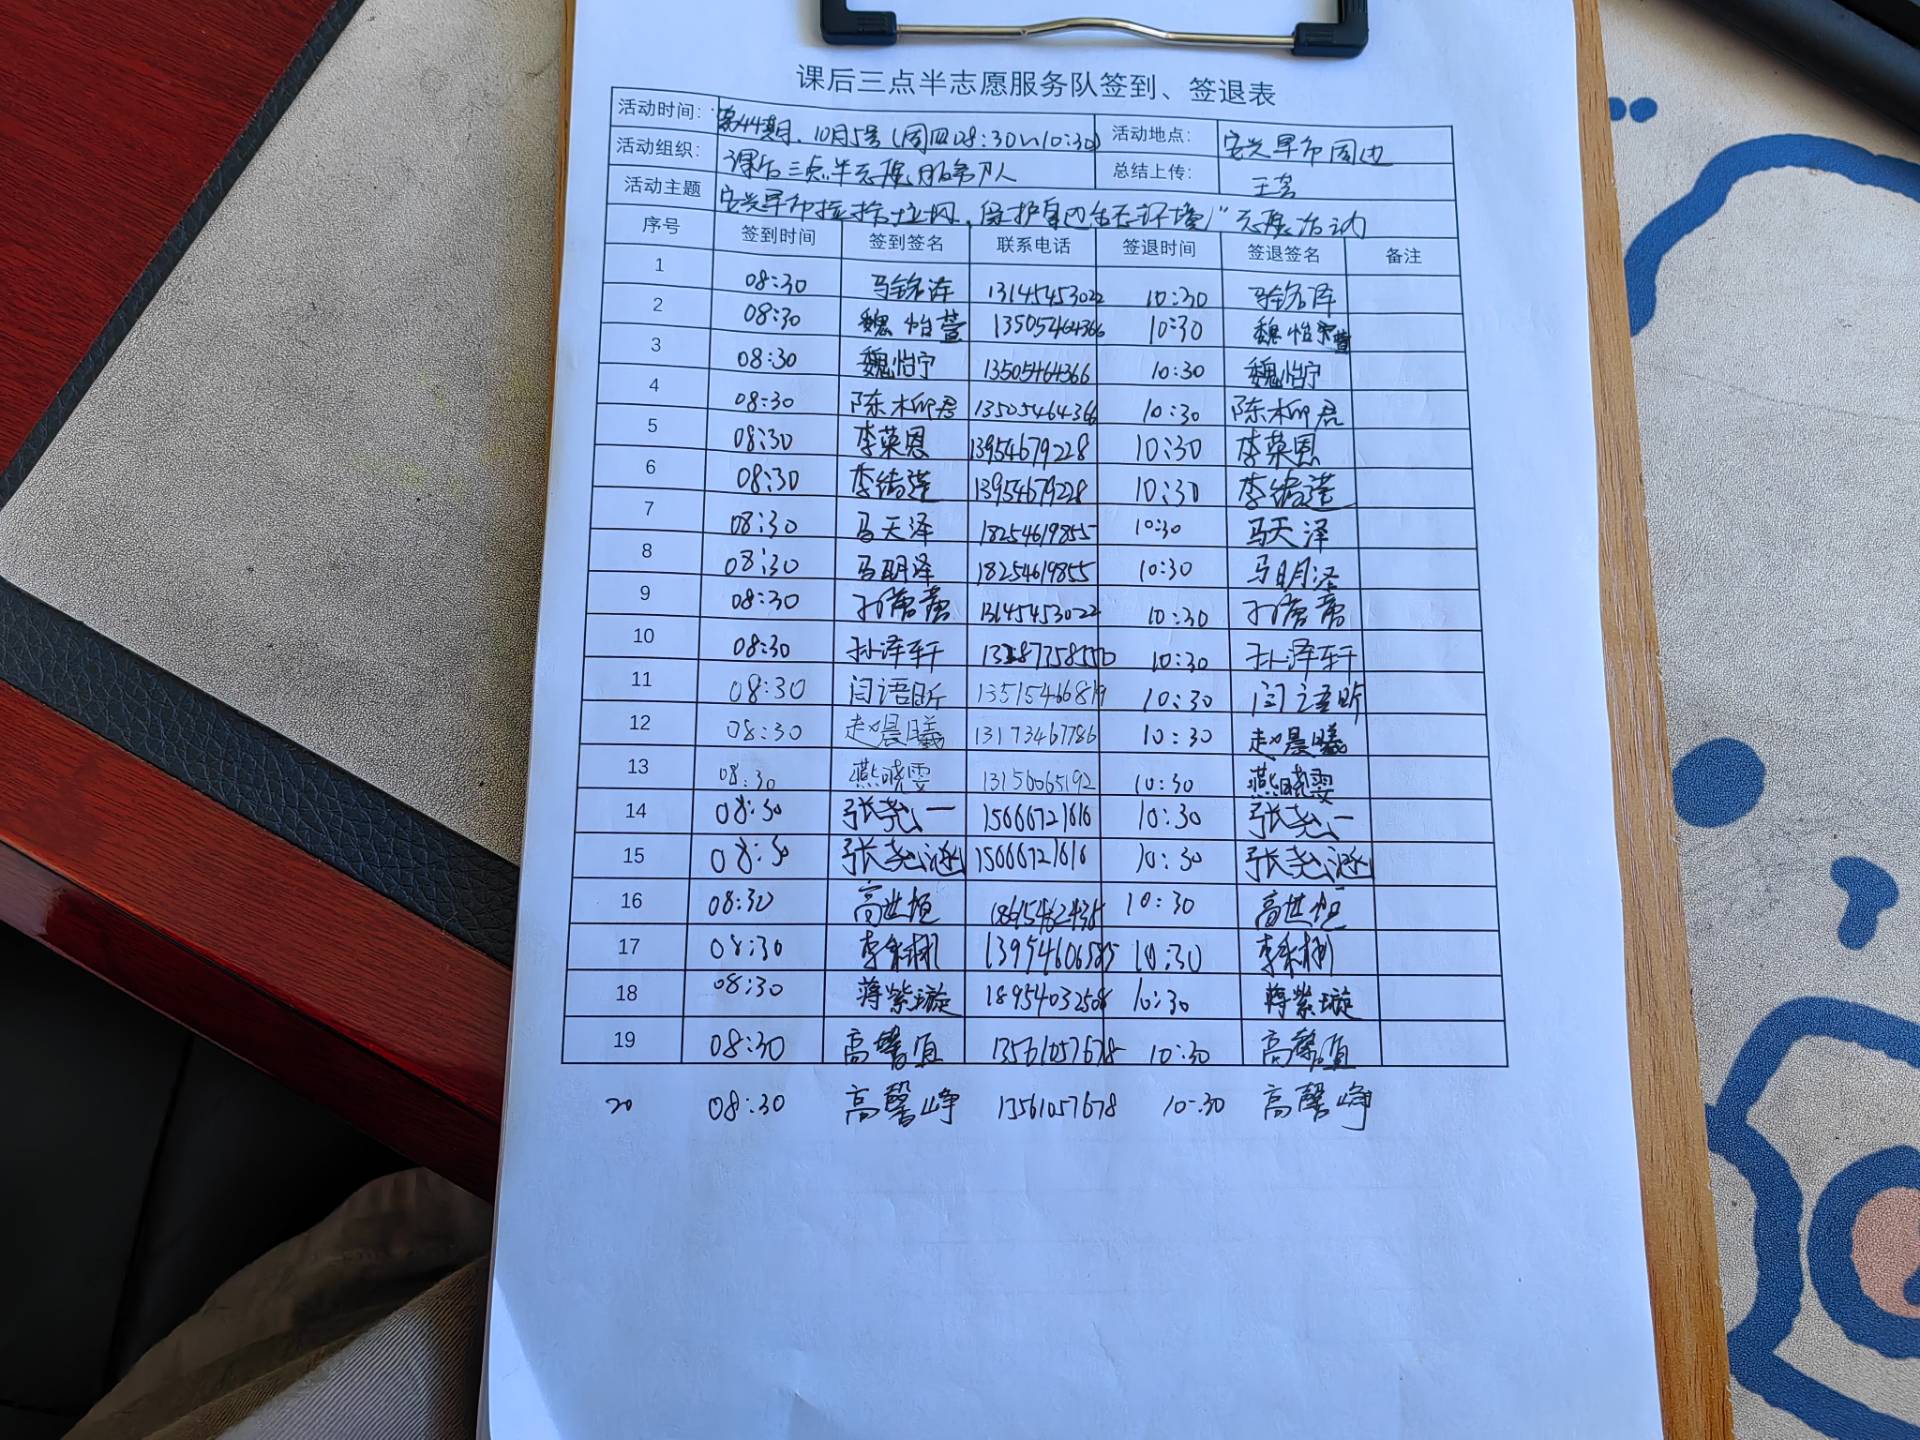 课后三点半志愿服务队签到、签退表
活动时间: 第44期、10月5号(周四08:30~10:30) 活动地点: 安兴早市周边
活动组织: 课后三点半志愿服务队 总结上传: 王芸
活动主题 安兴早市捡拾垃圾,保护身边生态环境"志愿活动
序号 签到时间 签到签名 联系电话 签退时间 签退签名 备注
1 08:30 马铭泽 13145453022 10:30 马铭泽
2 08:30 魏怡萱 13505464366 10:30 魏怡萱
3 08:30 魏怡宁 13505464366 10:30 魏怡宁
4 08:30 陈柳君 13505464366 10:30 陈柳君
5 08:30 李荣恩 13954679228 10:30 李荣恩
6 08:30 李绪莲 13954679228 10:30 李绪莲
7 08:30 马天泽 18254619855 10:30 马天泽
8 08:30 马明泽 18254619855 10:30 马明泽
9 08:30 13145453022 10:30
10 08:30 孙泽轩 10:30 孙泽轩
11 08:30 闫语昕 13515466819 10:30 闫语昕
12 08:30 赵晨曦 13173467786 10:30 赵晨曦
13 08:30 燕晓雯 13156065192 10:30 燕晓雯
14 08:30 张尧一 15666721616 10:30 张尧一
15 08:30 张尧涵 15666721616 10:30 张尧涵
16 08:30 高世恒 10:30 高世恒
17 08:30 13954606585 10:30
18 08:30 蒋紫璇 18954032508 10:30 蒋紫璇
19 08:30 高馨值 13561057678 10:30 高馨值
20 08:30 高馨峥 13561057678 10:30 高馨峥